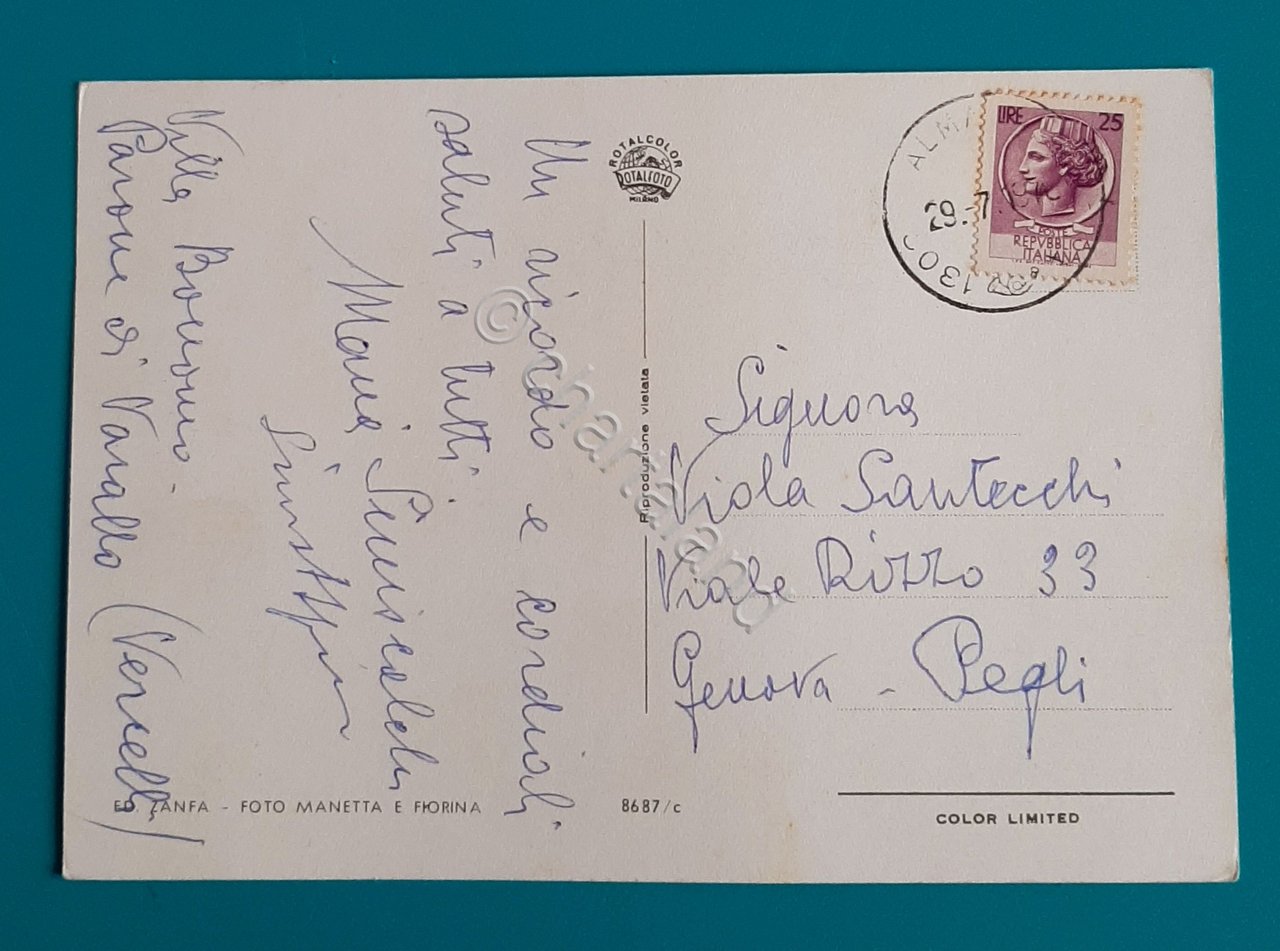 Un ricordo e cordiali
saluti a tutti.
Maria
Villa Bononi.
Parone di Varallo (Vercelli)
ROTALCOLOR
ROTALFOTO
MILANO
Riproduzione vietata
LIRE 25
POSTE
REPVBBLICA
ITALIANA
ALMA
29.-7
130
Signora
Viola Santecchi
Viale Rizzo 33
Genova - Pegli
ED. ZANFA - FOTO MANETTA E FIORINA
8687/c
COLOR LIMITED
© chartaland